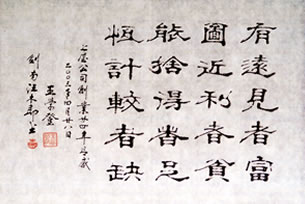 有遠見者富
圖近利者貧
能捨得者足
恆計較者缺
公司創業廿四年
二００六年四月廿八日